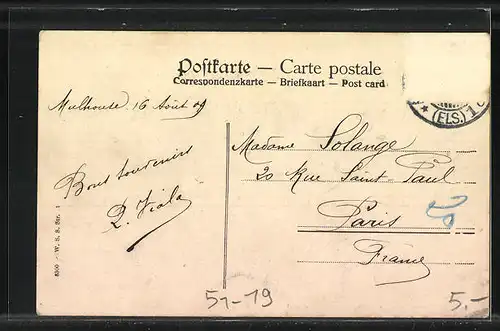 Postkarte — Carte postale
Correspondenzkarte — Briefkaart — Post card
(ELS.)
Mulhouse, 16 Août 09
Madame Solange
20 Rue Saint-Paul
Paris
France
Bons souvenirs
Viala
8300 - W. S. S. Str. 1
51-19
5.-